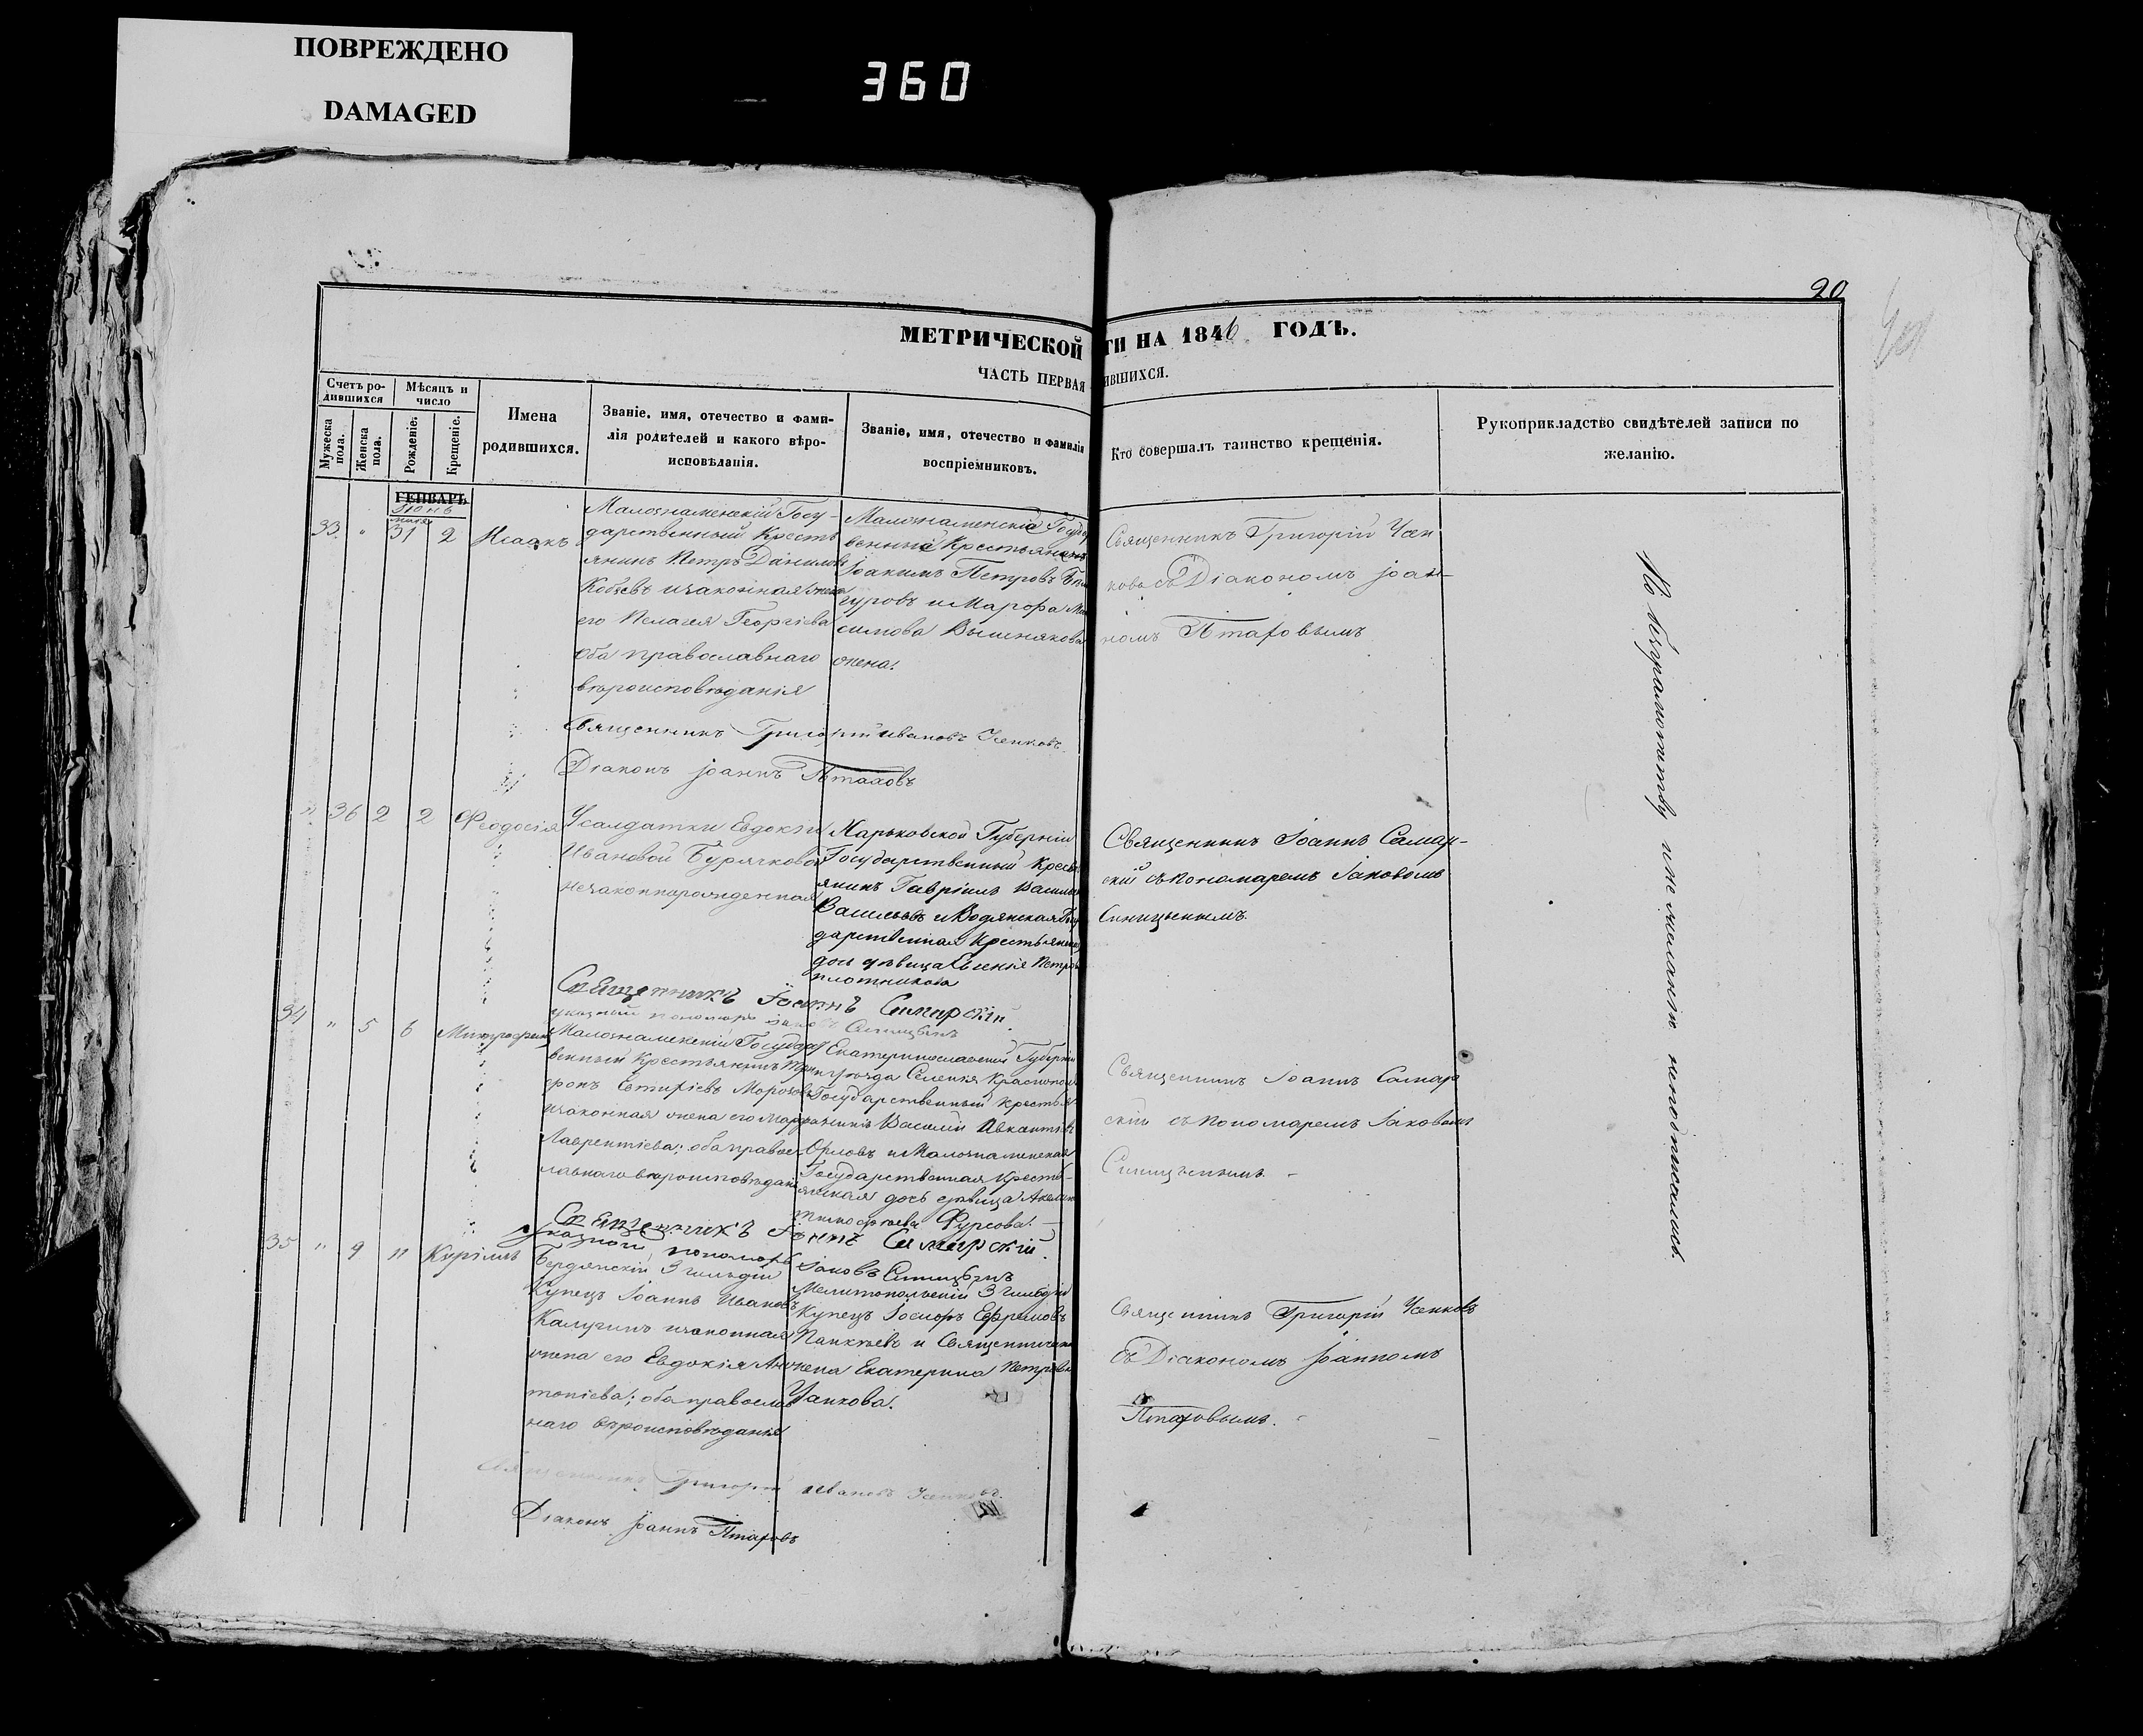 ПОВРЕЖДЕНО
DAMAGED
360
20
МЕТРИЧЕСКОЙ
ТИ НА 1846 ГОДЪ.
ЧАСТЬ ПЕРВАЯ
ИВШИХСЯ.
Счетъ ро-
дившихся
Мужеска пола.
Женска пола.
Мѣсяцъ и
число
Рожденіе.
Крещеніе.
Имена
родившихся.
Званіе, имя, отечество и фами-
лія родителей и какого вѣро-
исповѣданія.
Званіе, имя, отечество и фамилія
воспріемниковъ.
Кто совершалъ таинство крещенія.
Рукоприкладство свидѣтелей записи по
желанію.
ГЕНВАРЬ
Іюнь
мая
33 " 31 2 Исаакъ
Малознаменскій Госу-
дарственный Кресть
янинъ Петръ Данилов
Кобзевъ изаконная жена
его Пелагея Георгіева
оба православнаго
вѣроисповѣданія
Малознаменскіе
венные Крестьяне
Іоакимъ Петровъ
гуровъ и Марфа
симова Вышнякова
жена.
Священникъ Григорій Усен
ковъ съ Діакономъ Іоан-
номъ Птаховымъ
Священникъ Григорій Ивановъ Усенковъ
Діаконъ Іоаннъ Птаховъ
" 36 2 2 Феодосія
У салдатки Евдокіи
Ивановой Бурячковой
незаконнорожденная
Харьковской Губерніи
Государственный Кресть
янинъ Гавріилъ
Васильевъ и Водянская Госу
дарственная Крестьянка
дочь дѣвица Евгенія Петрова
плотникова
Священникъ Іоаннъ Самар-
скій съ пономаремъ Іаковомъ
Синицынымъ
Священникъ Іоаннъ Самарскій
указный пономарь Іаковъ Синицынъ
34 " 5 6 Митрофанъ
Малознаменскій Государст
венный Крестьянинъ
фонъ Евтихіевъ Морозовъ
изаконная жена его
Лаврентіева; оба правос-
лавнаго вѣроисповѣданія
Екатеринославской Губерніи
уѣзда Селенія
Государственный Крестья
нинъ Василій
Орловъ и Малознаменская
Государственная Кресть-
янская дочь дѣвица
Тимофеева Фурсова. —
Священникъ Іоаннъ Самар
скій съ пономаремъ Іаковомъ
Синицынымъ. —
Священникъ Іоаннъ Самарскій.
указной пономарь Іаковъ Синицынъ
35 " 9 11 Курілъ
Бердянскій 3 гильдіи
Купецъ Іоаннъ Ивановъ
Калугинъ изаконная
жена его Евдокія Ан
тоніева; оба православ
наго вѣроисповѣданія
Мелитопольскій 3 гильдіи
Купецъ Іосифъ Ефремовъ
Панкѣевъ и Священническая
жена Екатерина Петрова
Усенкова.
Священникъ Григорій Усенковъ
съ Діакономъ Іоанномъ
Птаховымъ.
Священникъ Григорій Ивановъ Усенковъ.
Діаконъ Іоаннъ Птаховъ
По безграмотству и нежеланію неподписались.